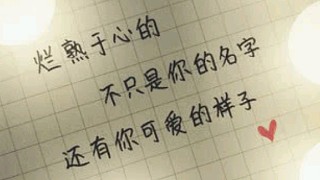 烂熟于心的
不只是你的名字
还有你可爱的样子